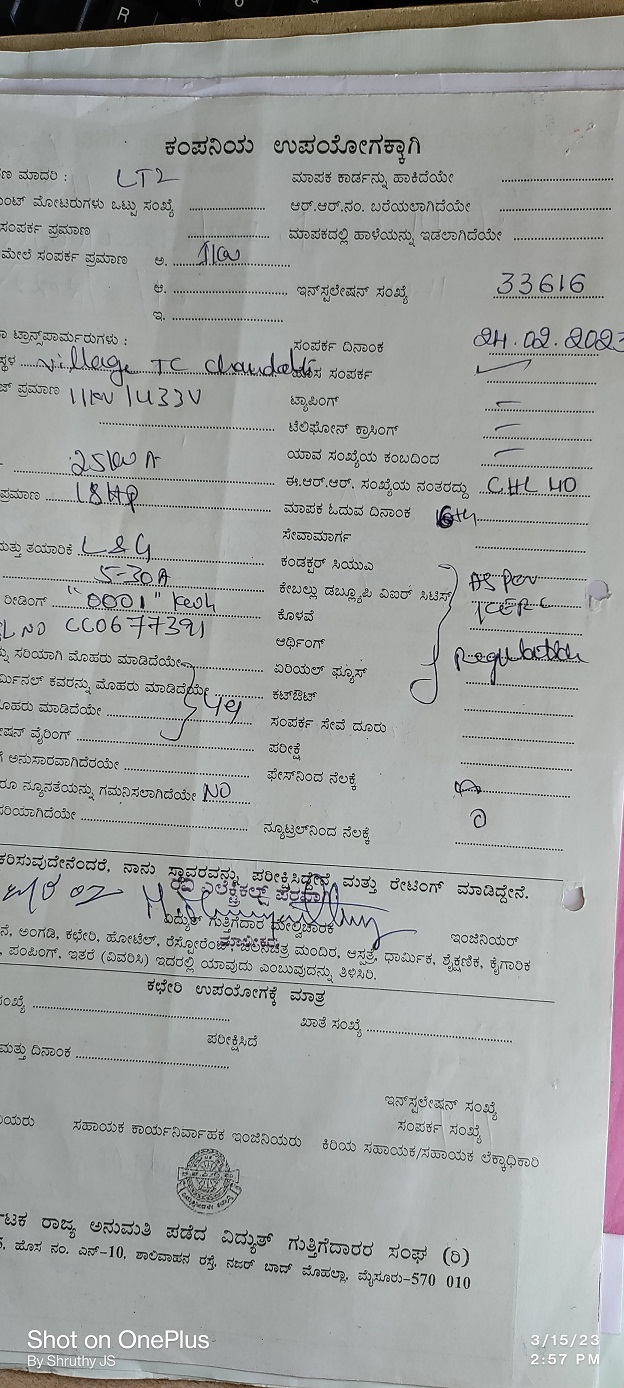 R
ಕಂಪನಿಯ ಉಪಯೋಗಕ್ಕಾಗಿ
ಣ ಮಾದರಿ : LT2 ಮಾಪಕ ಕಾರ್ಡನ್ನು ಹಾಕಿದೆಯೇ
ಂಟ್ ಮೋಟರುಗಳು ಒಟ್ಟು ಸಂಖ್ಯೆ ಆರ್.ಆರ್.ನಂ. ಬರೆಯಲಾಗಿದೆಯೇ
ಸಂಪರ್ಕ ಪ್ರಮಾಣ ಮಾಪಕದಲ್ಲಿ ಹಾಳೆಯನ್ನು ಇಡಲಾಗಿದೆಯೇ
ಮೇಲೆ ಸಂಪರ್ಕ ಪ್ರಮಾಣ ಅ.
ಆ. ಇನ್‌ಸ್ಟಲೇಷನ್ ಸಂಖ್ಯೆ 33616
ಇ.
ಾ ಟ್ರಾನ್ಸ್‌ಪಾರ್ಮರುಗಳು : ಸಂಪರ್ಕ ದಿನಾಂಕ 24.02.2023
ಸ್ಥಳ village TC ಹೊಸ ಸಂಪರ್ಕ
ಜ್ ಪ್ರಮಾಣ 11KV/433V ಟ್ಯಾಪಿಂಗ್
ಟೆಲಿಫೋನ್ ಕ್ರಾಸಿಂಗ್
25KVA ಯಾವ ಸಂಖ್ಯೆಯ ಕಂಬದಿಂದ
ಈ.ಆರ್.ಆರ್. ಸಂಖ್ಯೆಯ ನಂತರದ್ದು CHL 40
ಪ್ರಮಾಣ ಮಾಪಕ ಓದುವ ದಿನಾಂಕ
ಸೇವಾಮಾರ್ಗ
ಮತ್ತು ತಯಾರಿಕೆ L&G ಕಂಡಕ್ಟರ್ ಸಿಯುಎ
5-30A ಕೇಬಲ್ಲು ಡಬ್ಲ್ಯೂಪಿ ವಿಐರ್ ಸಿಟಿಸ್ As per
ರೀಡಿಂಗ್ "0001" Kwh ಕೊಳವೆ
SL NO CC0677391 ಆರ್ಥಿಂಗ್ Regulation
ನು ಸರಿಯಾಗಿ ಮೊಹರು ಮಾಡಿದೆಯೇ ಏರಿಯಲ್ ಫ್ಯೂಸ್
ರ್ಮಿನಲ್ ಕವರನ್ನು ಮೊಹರು ಮಾಡಿದೆಯೇ ಕಟ್‌ಔಟ್
ಮೊಹರು ಮಾಡಿದೆಯೇ ಸಂಪರ್ಕ ಸೇವೆ ದೂರು
ಷನ್ ವೈರಿಂಗ್ ಪರೀಕ್ಷೆ
ಗೆ ಅನುಸಾರವಾಗಿದೆರಯೇ ಫೇಸ್‌ನಿಂದ ನೆಲಕ್ಕೆ
ರೂ ನ್ಯೂನತೆಯನ್ನು ಗಮನಿಸಲಾಗಿದೆಯೇ NO
ಸರಿಯಾಗಿದೆಯೇ ನ್ಯೂಟ್ರಲ್‌ನಿಂದ ನೆಲಕ್ಕೆ
ಕರಿಸುವುದೇನೆಂದರೆ, ನಾನು ಸ್ಥಾವರವನ್ನು ಪರೀಕ್ಷಿಸಿದ್ದೇನೆ ಮತ್ತು ರೇಟಿಂಗ್ ಮಾಡಿದ್ದೇನೆ.
ವಿದ್ಯುತ್ ಗುತ್ತಿಗೆದಾರ ಮೇಲ್ವಿಚಾರಕ ಇಂಜಿನಿಯರ್
ನೆ, ಅಂಗಡಿ, ಕಛೇರಿ, ಹೋಟೆಲ್, ರೆಸ್ಟೋರೆಂಟ್, ಚಲನಚಿತ್ರ ಮಂದಿರ, ಆಸ್ಪತ್ರೆ, ಧಾರ್ಮಿಕ, ಶೈಕ್ಷಣಿಕ, ಕೈಗಾರಿಕ
, ಪಂಪಿಂಗ್, ಇತರೆ (ವಿವರಿಸಿ) ಇದರಲ್ಲಿ ಯಾವುದು ಎಂಬುವುದನ್ನು ತಿಳಿಸಿರಿ.
ಕಛೇರಿ ಉಪಯೋಗಕ್ಕೆ ಮಾತ್ರ
ಸಂಖ್ಯೆ ಖಾತೆ ಸಂಖ್ಯೆ
ಪರೀಕ್ಷಿಸಿದೆ
ಮತ್ತು ದಿನಾಂಕ
ಇನ್‌ಸ್ಟಲೇಷನ್ ಸಂಖ್ಯೆ
ಸಂಪರ್ಕ ಸಂಖ್ಯೆ
ನಿಯರು ಸಹಾಯಕ ಕಾರ್ಯನಿರ್ವಾಹಕ ಇಂಜಿನಿಯರು ಕಿರಿಯ ಸಹಾಯಕ/ಸಹಾಯಕ ಲೆಕ್ಕಾಧಿಕಾರಿ
ಾಟಕ ರಾಜ್ಯ ಅನುಮತಿ ಪಡೆದ ವಿದ್ಯುತ್ ಗುತ್ತಿಗೆದಾರರ ಸಂಘ (ರಿ)
5, ಹೊಸ ನಂ. ಎನ್-10, ಶಾಲಿವಾಹನ ರಸ್ತೆ, ನಜರ್ ಬಾದ್ ಮೊಹಲ್ಲಾ, ಮೈಸೂರು-570 010
Shot on OnePlus
By Shruthy JS
3/15/23
2:57 PM